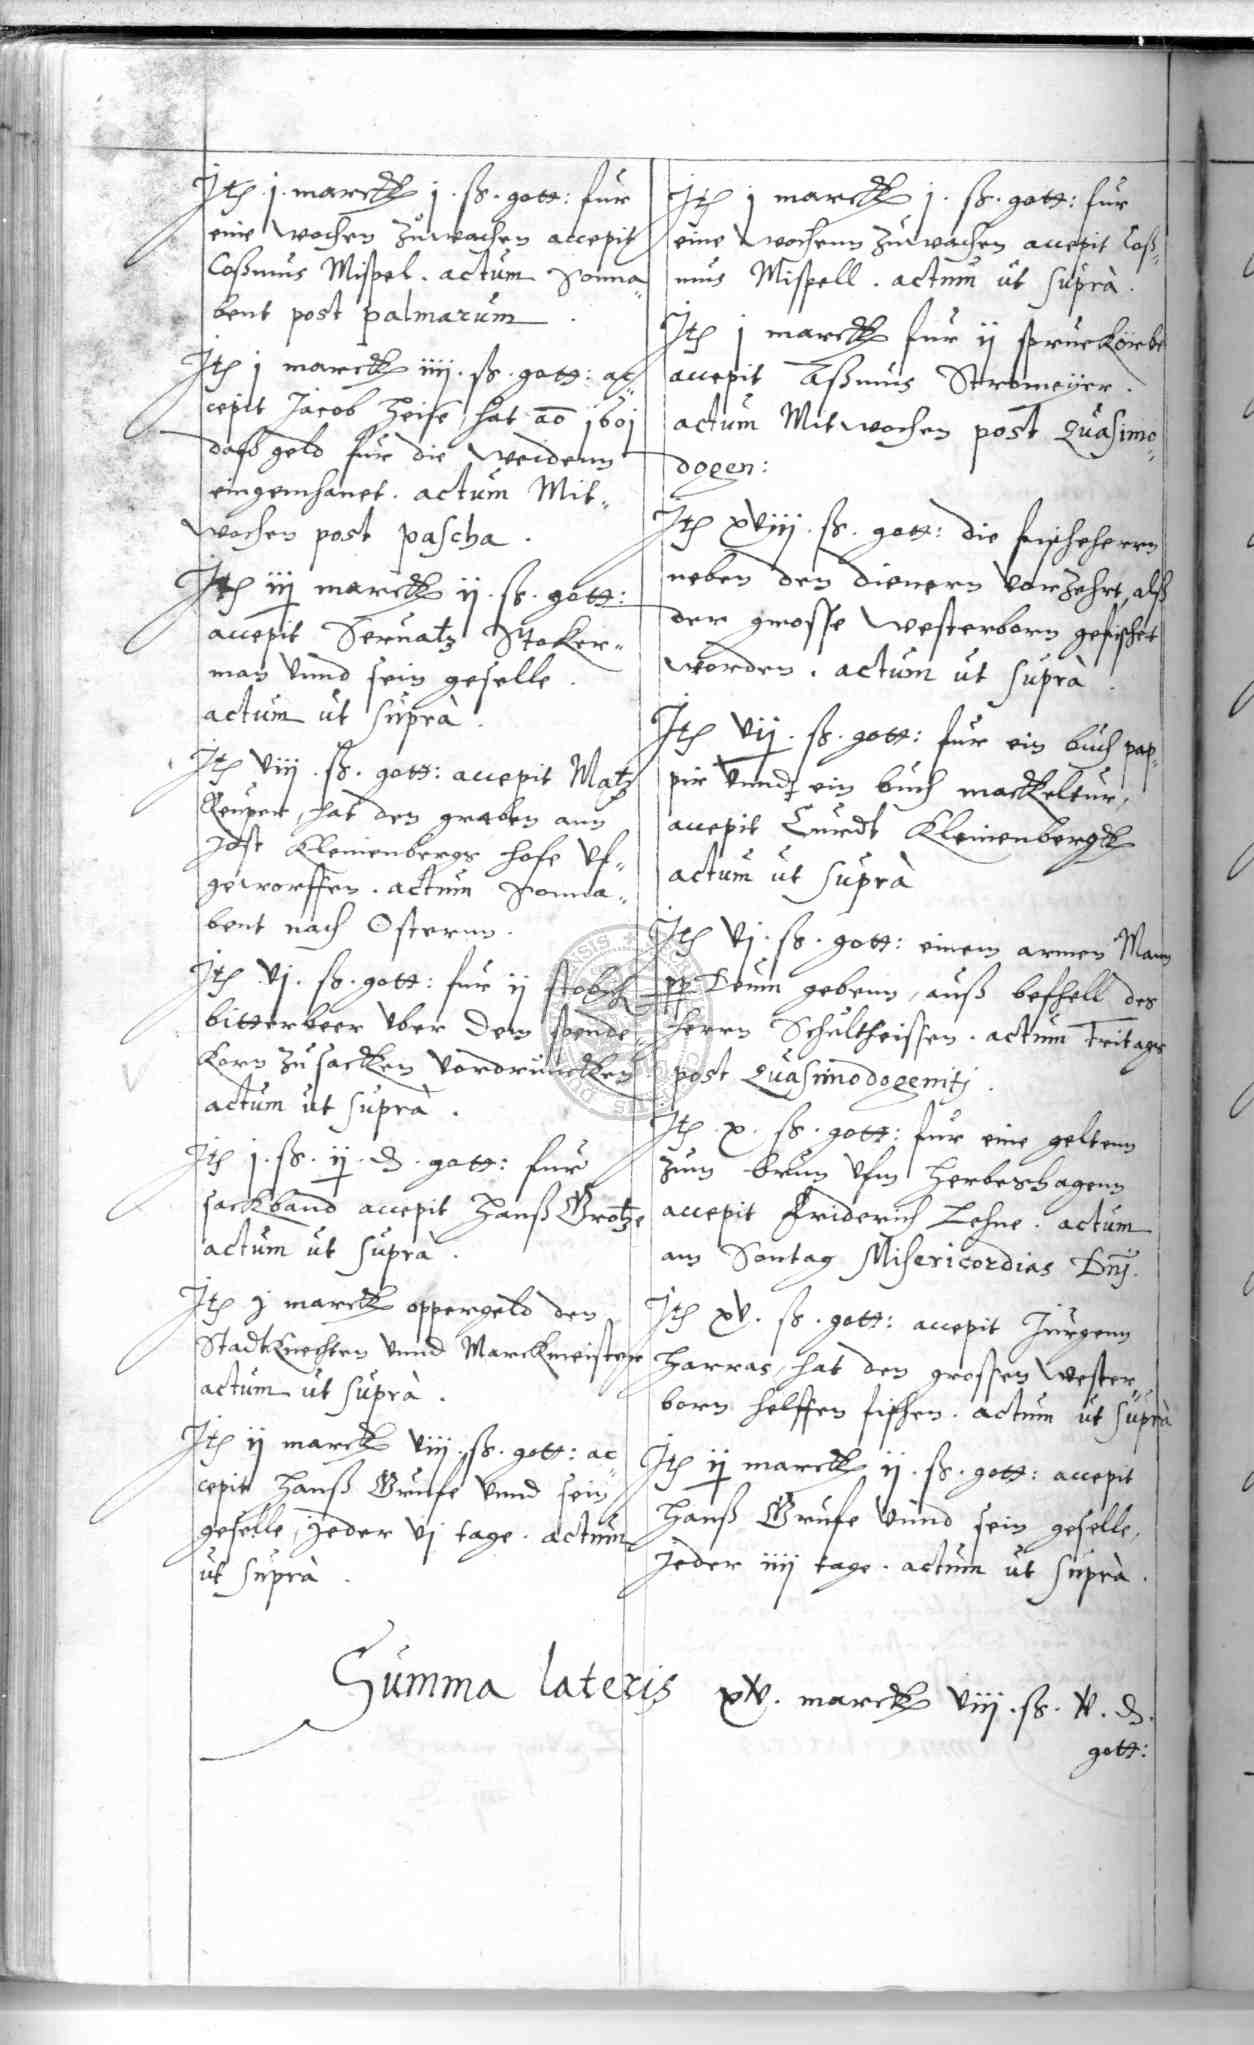 Ith j. marck j. ß. gott: fur
eine wochen zuwachen accepit
Coßmus Mispel. actum Sonna„
bent post palmarum.
Ith j marck iiij. ß. gott: ac„
cepit Jacob Heise, hat ao 1601
dasb geld fur die weidenn
eingemhanet. actum Mit„
wochen post pascha.
Ith iij marck ij. ß. gott:
accepit Seruatz Stoker„
man vnnd sein geselle.
actum ut suprà.
Ith viij. ß. gott: accepit Matz
Keuper, hat den graben ann
Jost Kleinenbergs hofe vf„
geworffen. actum Sonna„
bent nach Osternn.
Ith vj. ß. gott: fur ij stobch
bitterbeer vber dem spende
korn zu sacken vordruncken
actum ut suprà.
Ith j. ß. ij. d. gott: fur
sackband accepit Hanß Grotze
actum ut suprà.
Ith j marck oppergeld den
Stadtknechten vnnd Marckmeister
actum ut suprà.
Ith ij marck viij. ß. gott: ac„
cepit Hanß Grufe vnnd sein
geselle, jeder vj tage. actum
ut suprà.
Ith j marck j. ß. gott: fur
eine wochenn zuwachen accepit Coß„
mus Mispell. actum ut suprà.
Ith j marck fur ij spruekörbe
accepit Aßmus Stromeyer.
actum Mitwochen post Quasimo„
dogen:
Ith xviij. ß. gott: die fischeherrn
neben den dienern vorzehrt, alß
der grosse westerborn gefischet
worden. actum ut suprà.
Ith vij. ß. gott: fur ein buch pap„
pir vnndt ein buch mackeltur,
accepit Curdt Kleinenbergk
actum ut suprà
Ith vj. ß. gott: einem armen Mann
pp Deum gebenn, auß befhell des
Herrn Schultheissen. actum Fritags
post Quasimodogenitj.
Ith x. ß. gott: fur eine geltenn
zum brun vfm Herbershagenn
accepit Friderich Lehne. actum
am Sontag Misericordias Dnj.
Ith xv. ß. gott: accepit Jurgenn
Harras, hat den grossen wester„
born helffen fischen. actum ut suprà
Ith ij marck ij. ß. gott: accepit
Hanß Grufe vnnd sein geselle,
jeder iiij tage. actum ut suprà.
Summa lateris xv. marck viij. ß. v. d.
gott: